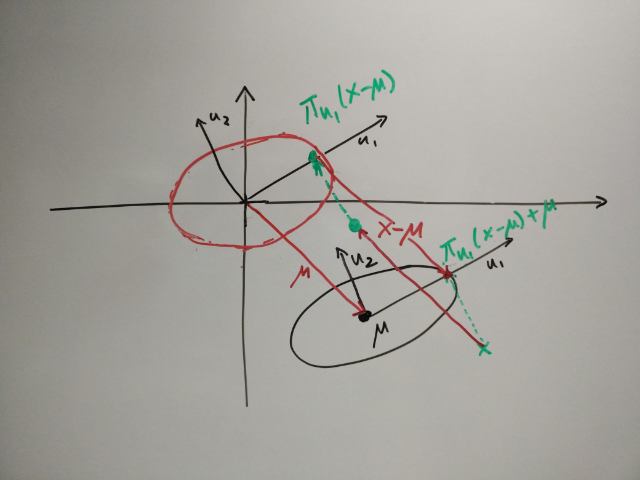 π_u₁(x-μ)
u₂
u₁
x-μ
π_u₁(x-μ)+μ
u₂
u₁
μ
μ
x